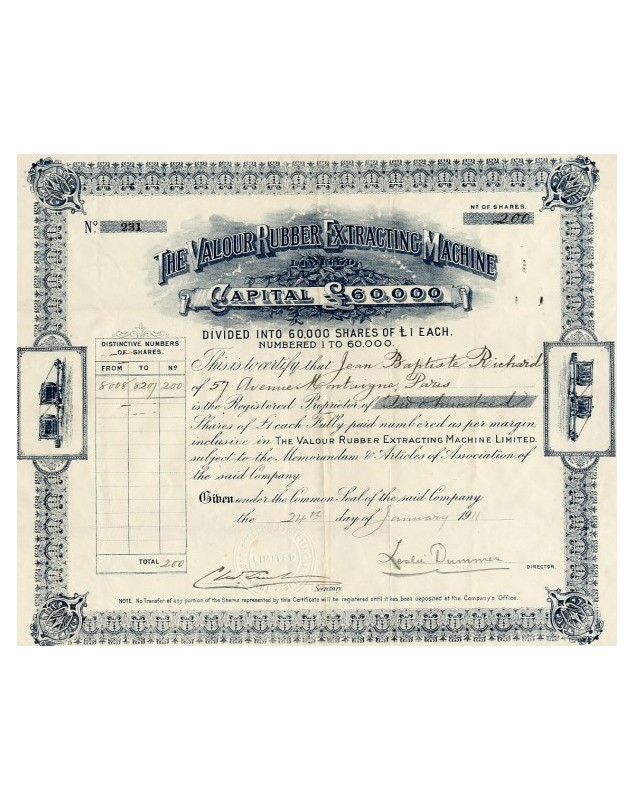 Nº OF SHARES.
Nº 231
200
THE VALOUR RUBBER EXTRACTING MACHINE
LIMITED
CAPITAL £60,000
DIVIDED INTO 60,000 SHARES OF £1 EACH.
NUMBERED 1 TO 60,000.
DISTINCTIVE NUMBERS
OF SHARES.
FROM TO Nº
8008 8207 200
TOTAL 200
This is to certify that Jean Baptiste Richard
of 57 Avenue Montaigne, Paris
is the Registered Proprietor of Two hundred
Shares of £1 each Fully paid numbered as per margin
inclusive in THE VALOUR RUBBER EXTRACTING MACHINE LIMITED.
subject to the Memorandum & Articles of Association of
the said Company
Given under the Common Seal of the said Company
the 24th day of January 1911
Leslie Dummer
DIRECTOR.
Secretary
NOTE. No Transfer of any portion of the Shares represented by this Certificate will be registered until it has been deposited at the Company's Office.